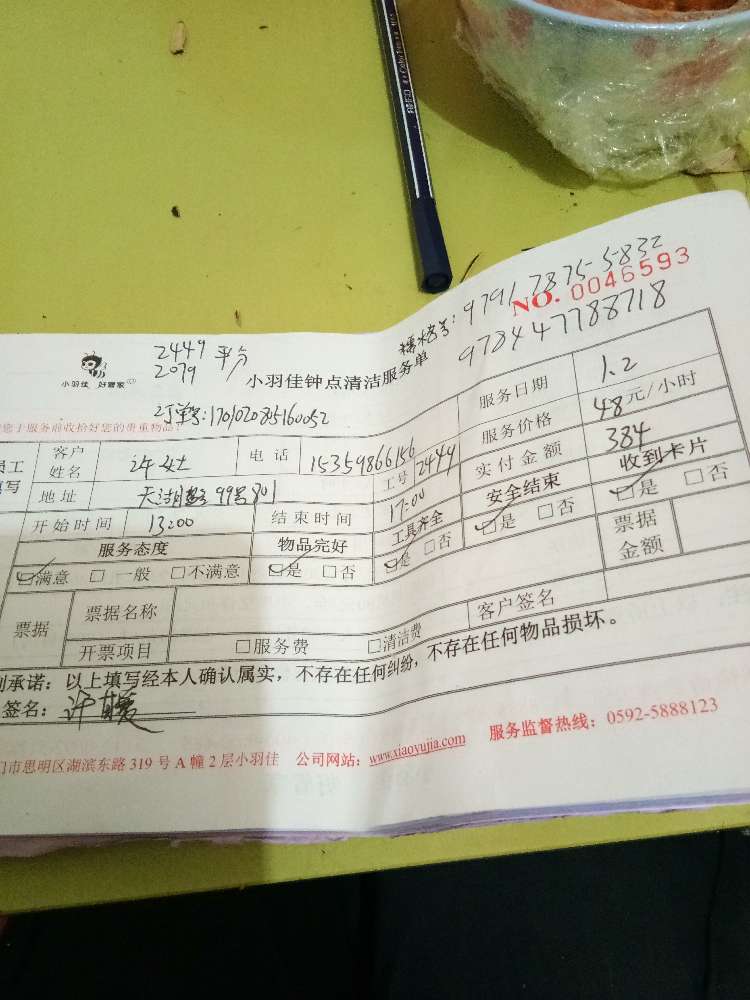 9791 7875-5832
NO. 0046593
978447788718
2449 平分
2079
小羽佳 好管家
小羽佳钟点清洁服务单
170102085160052
您于服务前收检好您的贵重物品!
服务日期 1.2
员工填写 客户姓名 许女士 电话 15359866156 工号 2449 服务价格 48元/小时
地址 99号801 实付金额 384
开始时间 13:00 结束时间 17:00 安全结束 收到卡片
服务态度 物品完好 工具齐全 ☑是 □否 ☑是 □否
☑满意 □一般 □不满意 ☑是 □否 ☑是 □否 票据金额
票据 票据名称 客户签名
开票项目 □服务费 □清洁费
承诺：以上填写经本人确认属实，不存在任何纠纷，不存在任何物品损坏。
签名：许
门市思明区湖滨东路319号A幢2层小羽佳 公司网站：www.xiaoyujia.com 服务监督热线：0592-5888123